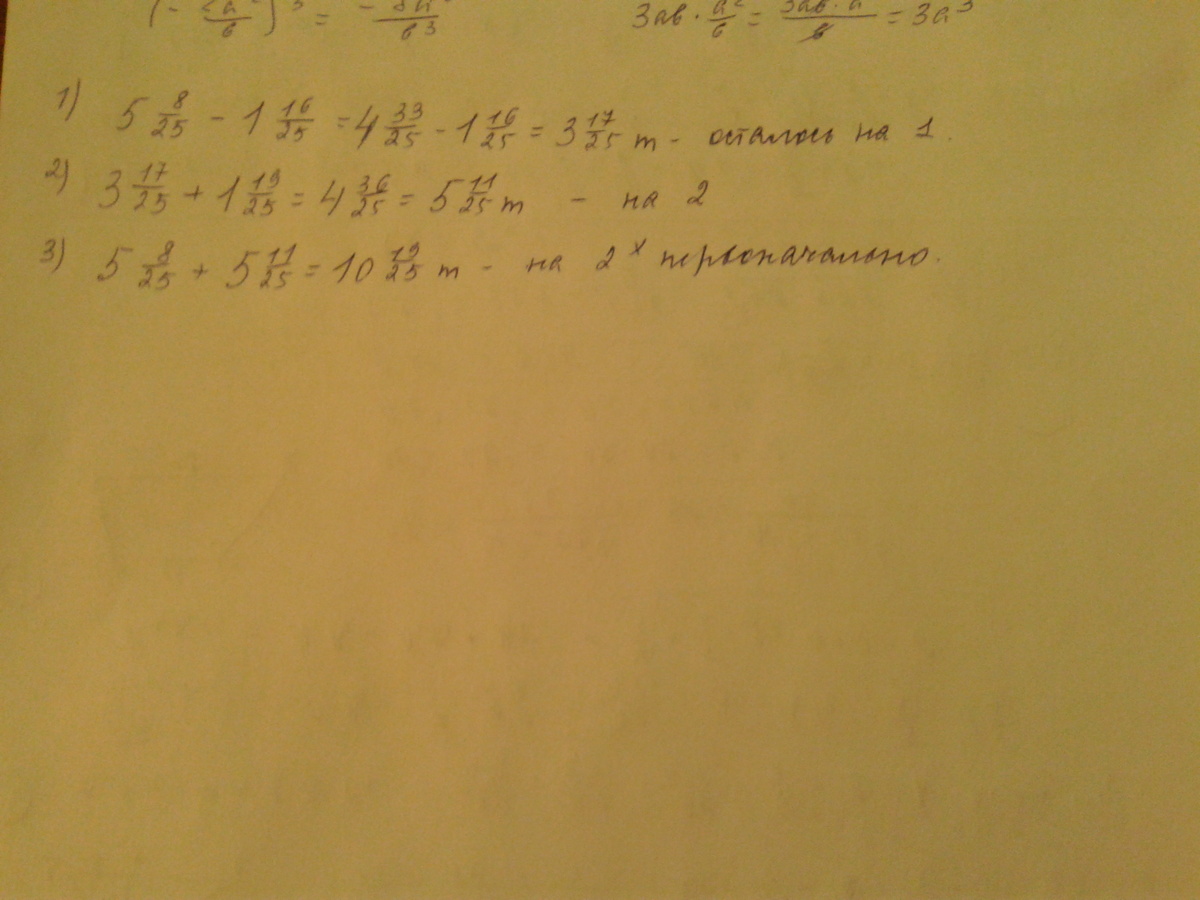 (- 2a/b)³ = -8a/b³    3ab · a²/b = 3ab·a/b = 3a³
1) 5 8/25 - 1 16/25 = 4 33/25 - 1 16/25 = 3 17/25 т - осталось на 1.
2) 3 17/25 + 1 19/25 = 4 36/25 = 5 11/25 т - на 2
3) 5 8/25 + 5 11/25 = 10 19/25 т - на 2х первоначально.